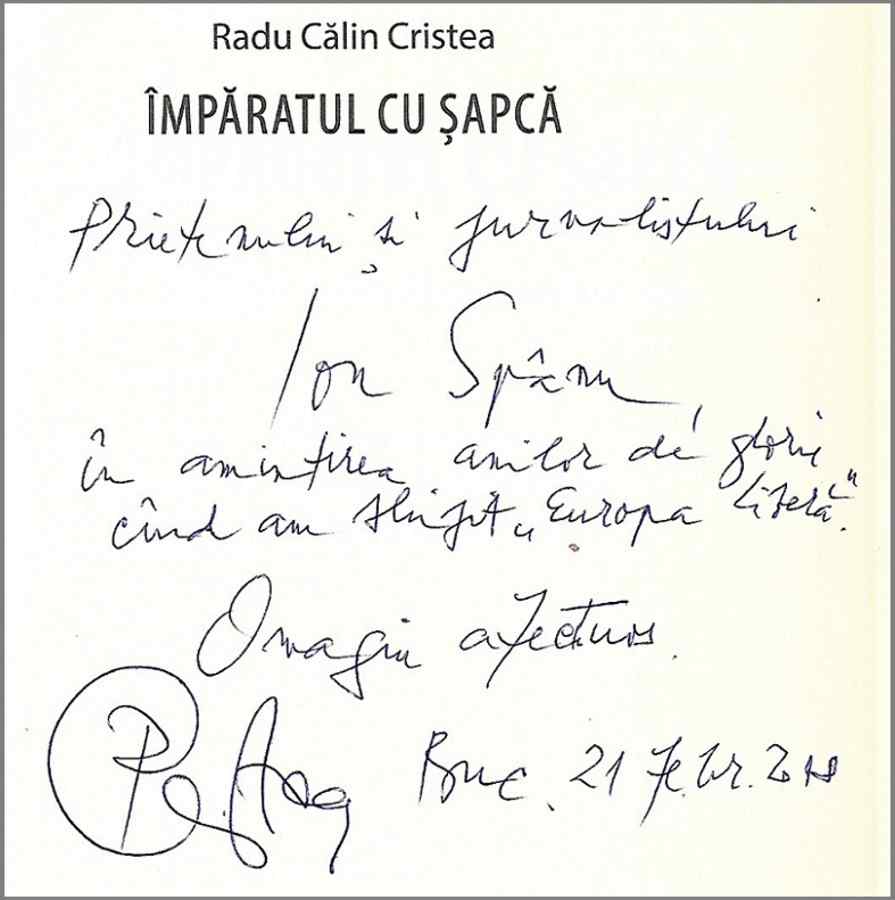 Radu Călin Cristea
ÎMPĂRATUL CU ȘAPCĂ
Prietenului și jurnalistului
Ion Spânu,
în amintirea anilor de glorie
cînd am slujit „Europa Liberă".
Omagiu afectuos.
Buc. 21 febr. 2018